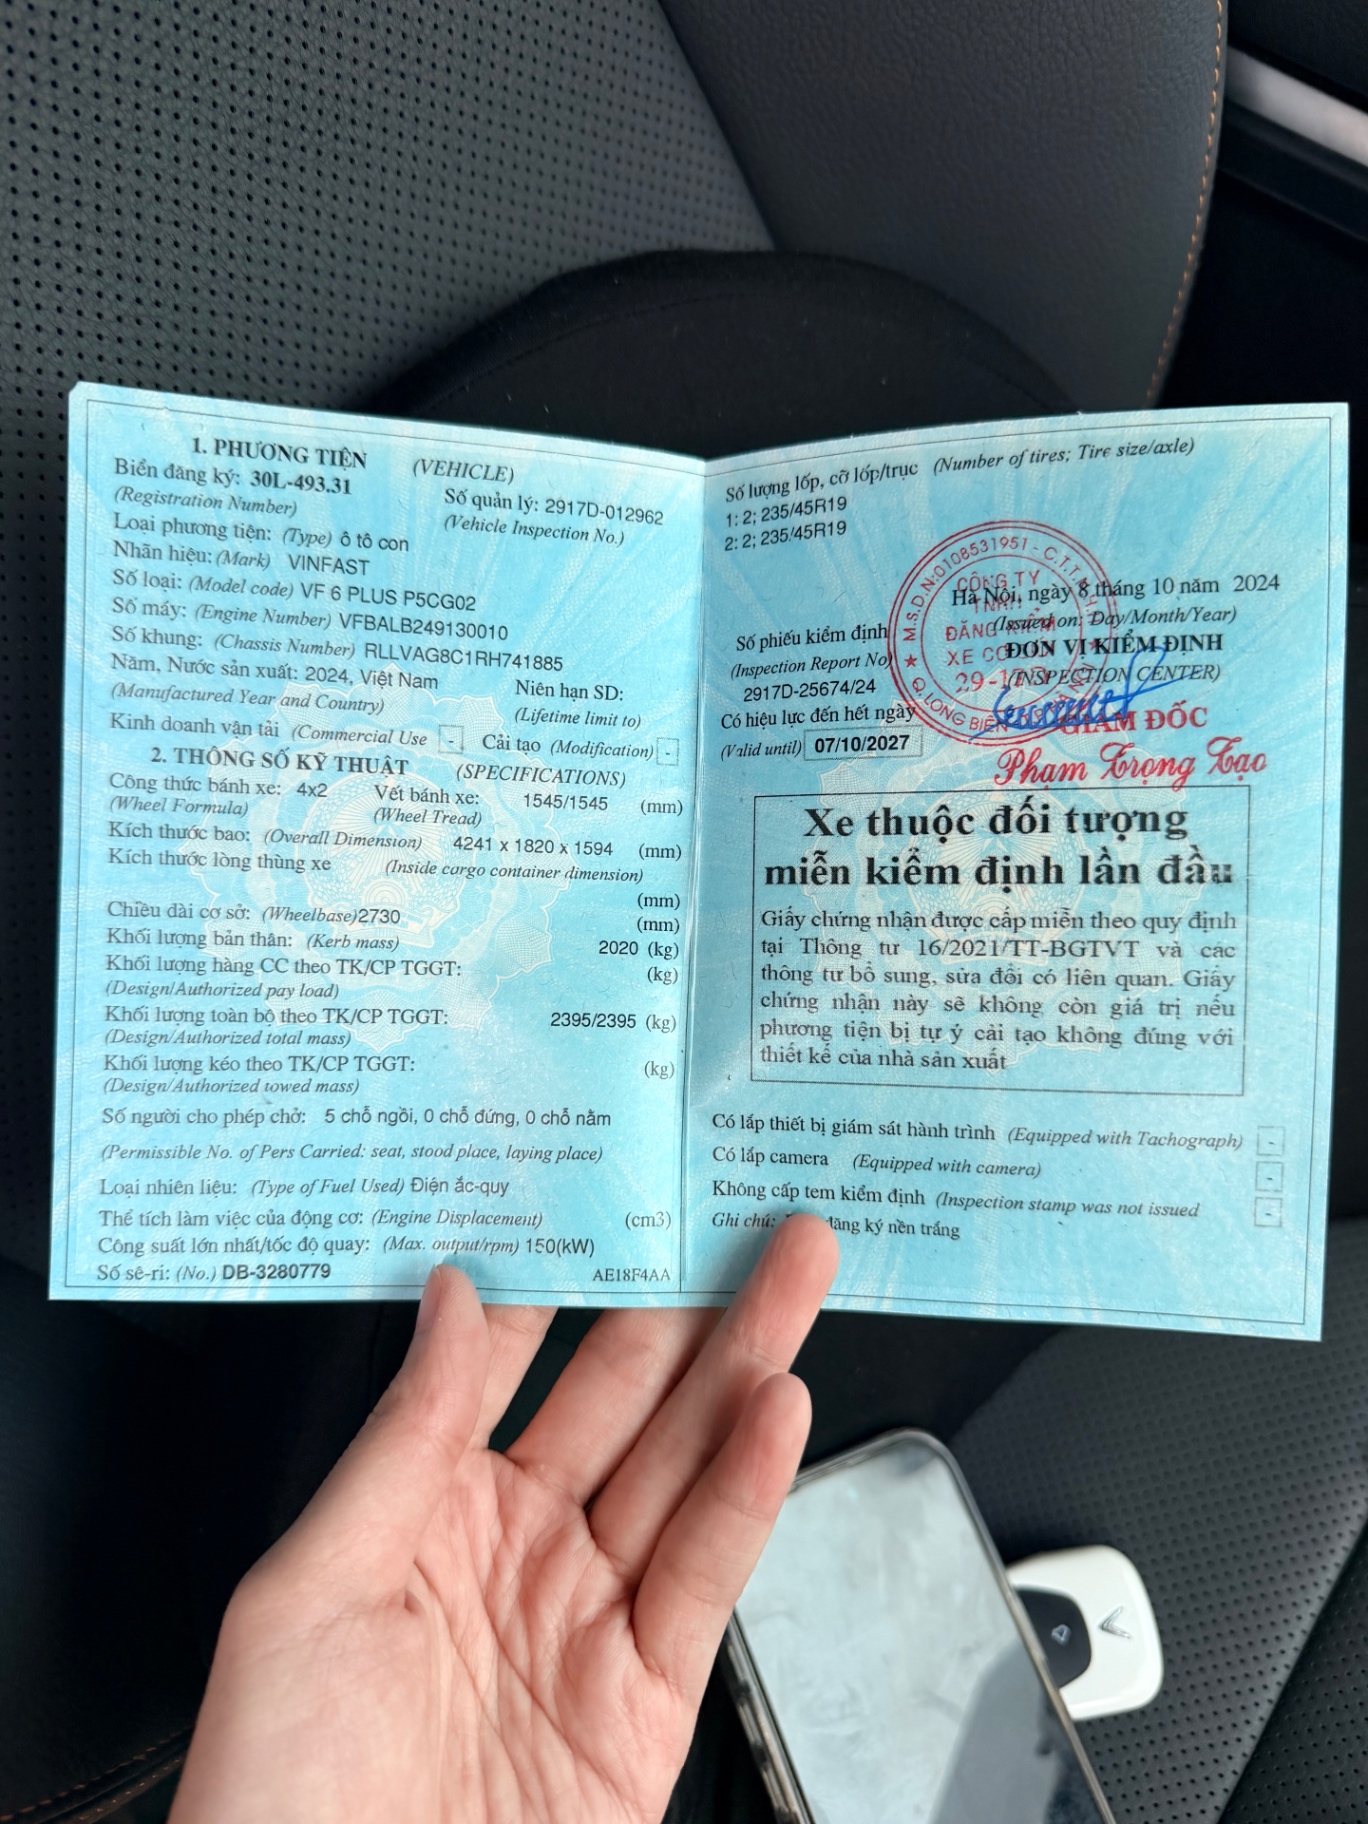 1. PHƯƠNG TIỆN (VEHICLE)
Biển đăng ký: 30L-493.31 Số quản lý: 2917D-012962
(Registration Number) (Vehicle Inspection No.)
Loại phương tiện: (Type) ô tô con
Nhãn hiệu: (Mark) VINFAST
Số loại: (Model code) VF 6 PLUS P5CG02
Số máy: (Engine Number) VFBALB249130010
Số khung: (Chassis Number) RLLVAG8C1RH741885
Năm, Nước sản xuất: 2024, Việt Nam Niên hạn SD:
(Manufactured Year and Country) (Lifetime limit to)
Kinh doanh vận tải (Commercial Use - Cải tạo (Modification) -
2. THÔNG SỐ KỸ THUẬT (SPECIFICATIONS)
Công thức bánh xe: 4x2 Vết bánh xe: 1545/1545 (mm)
(Wheel Formula) (Wheel Tread)
Kích thước bao: (Overall Dimension) 4241 x 1820 x 1594 (mm)
Kích thước lòng thùng xe (Inside cargo container dimension)
(mm)
Chiều dài cơ sở: (Wheelbase)2730 (mm)
Khối lượng bản thân: (Kerb mass) 2020 (kg)
Khối lượng hàng CC theo TK/CP TGGT: (kg)
(Design/Authorized pay load)
Khối lượng toàn bộ theo TK/CP TGGT: 2395/2395 (kg)
(Design/Authorized total mass)
Khối lượng kéo theo TK/CP TGGT: (kg)
(Design/Authorized towed mass)
Số người cho phép chở: 5 chỗ ngồi, 0 chỗ đứng, 0 chỗ nằm
(Permissible No. of Pers Carried: seat, stood place, laying place)
Loại nhiên liệu: (Type of Fuel Used) Điện ắc-quy
Thể tích làm việc của động cơ: (Engine Displacement) (cm3)
Công suất lớn nhất/tốc độ quay: (Max. output/rpm) 150(kW)
Số sê-ri: (No.) DB-3280779 AE18F4AA
Số lượng lốp, cỡ lốp/trục (Number of tires; Tire size/axle)
1: 2; 235/45R19
2: 2; 235/45R19
Hà Nội, ngày 8 tháng 10 năm 2024
(Issued on: Day/Month/Year)
ĐƠN VỊ KIỂM ĐỊNH
(INSPECTION CENTER)
M.S.D.N:0108531951 - C.T.T.N.H.H
CÔNG TY
TNHH
ĐĂNG KIỂM
XE CƠ
Q. LONG BIÊN
GIÁM ĐỐC
Phạm Trọng Tạo
Số phiếu kiểm định
(Inspection Report No)
2917D-25674/24
Có hiệu lực đến hết ngày
(Valid until) 07/10/2027
Xe thuộc đối tượng
miễn kiểm định lần đầu
Giấy chứng nhận được cấp miễn theo quy định
tại Thông tư 16/2021/TT-BGTVT và các
thông tư bổ sung, sửa đổi có liên quan. Giấy
chứng nhận này sẽ không còn giá trị nếu
phương tiện bị tự ý cải tạo không đúng với
thiết kế của nhà sản xuất
Có lắp thiết bị giám sát hành trình (Equipped with Tachograph) -
Có lắp camera (Equipped with camera) -
Không cấp tem kiểm định (Inspection stamp was not issued -
Ghi chú: đăng ký nền trắng